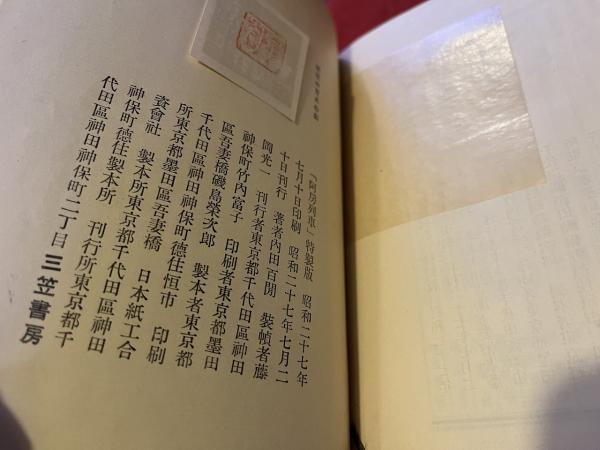 「阿房列車」特製版　昭和二十七年
七月十日印刷　昭和二十七年七月二
十日刊行　著者內田百閒　裝幀者藤
岡光一　刊行者東京都千代田區神田
神保町竹內富子　印刷者東京都墨田
區吾妻橋磯島榮次郎　製本者東京都
千代田區神田神保町德住恒市　印刷
所東京都墨田區吾妻橋　日本紙工合
資會社　製本所東京都千代田區神田
神保町德住製本所　刊行所東京都千
代田區神田神保町二丁目 三笠書房